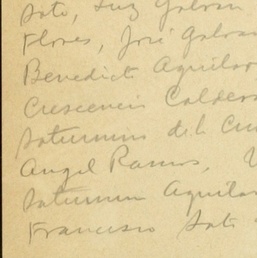 Soto, Luz Galvan
Flores, José Galvan
Benedict Aguilar
Crescencio Caldero
Saturnino de la Cru
Angel Ramos,
Saturnin Aguilar
Francisco Soto